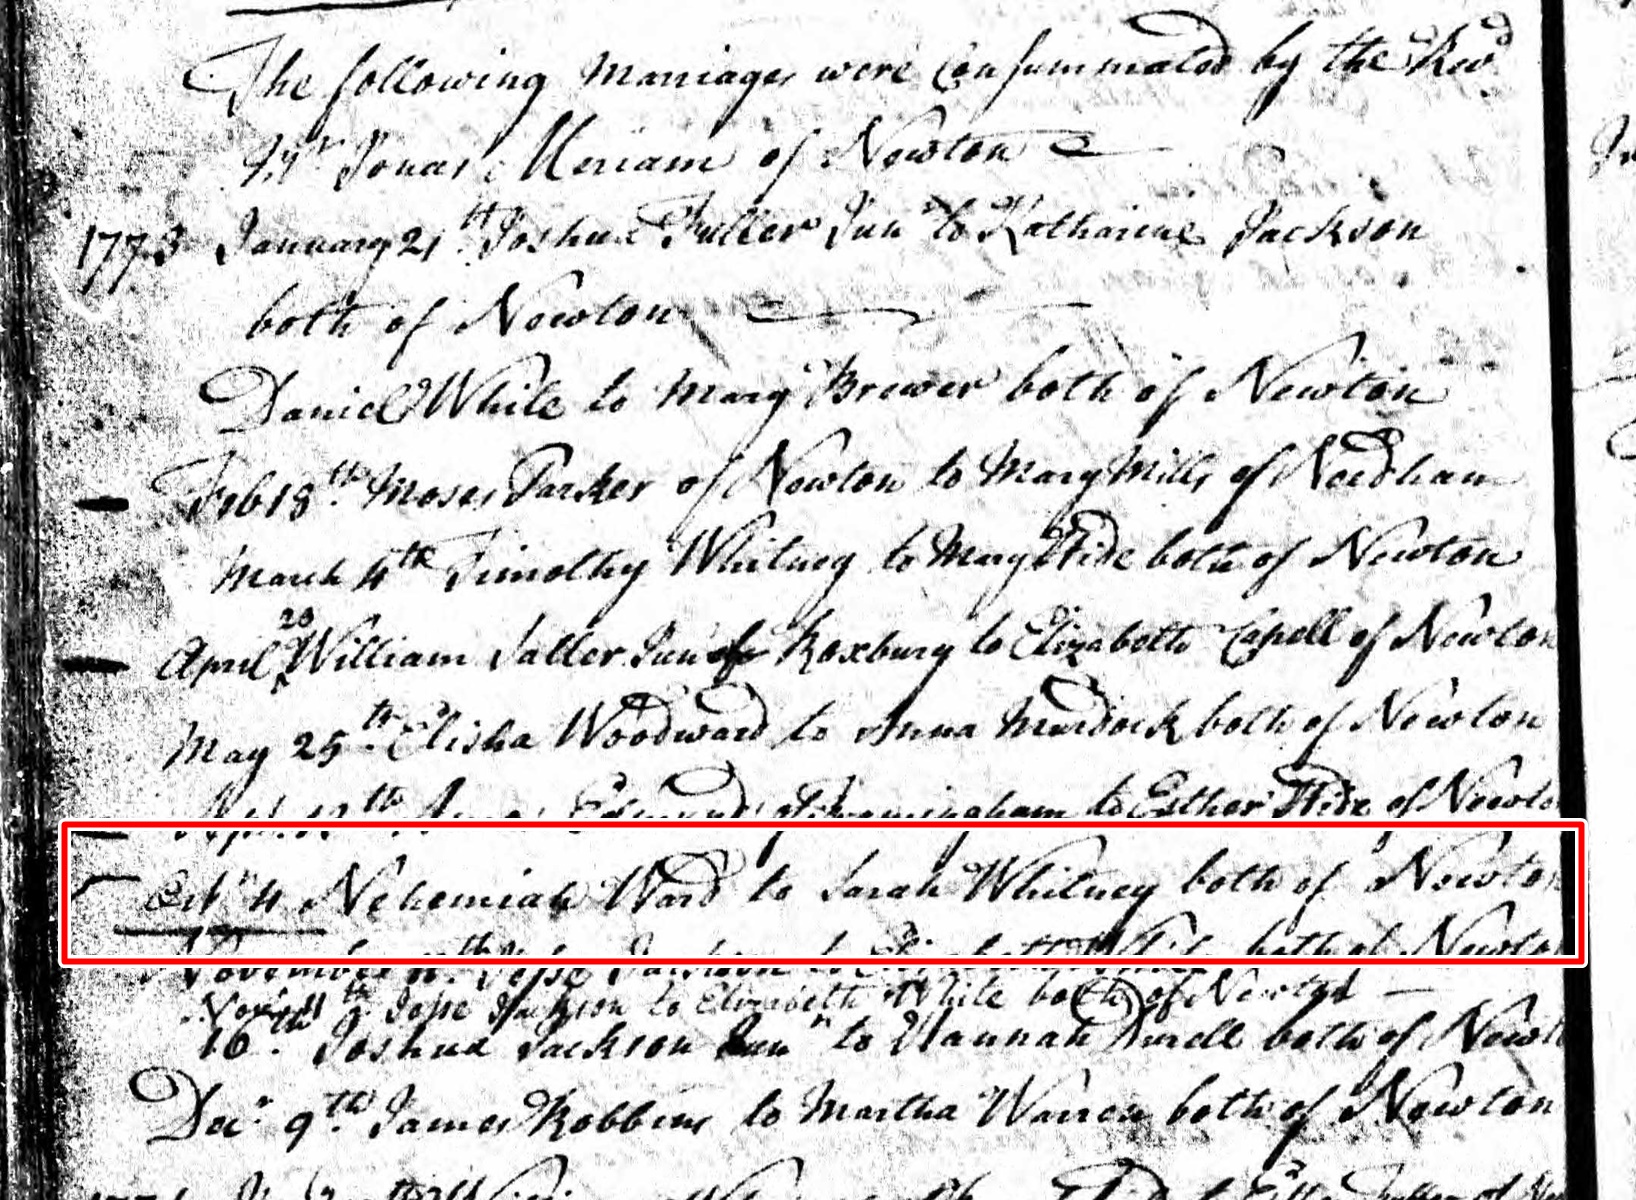 The following Marriages were Consummated by the Revd
Mr Jonas Meriam of Newton
1773 January 21st Joshua Fuller Junr to Katharine Jackson
both of Newton
Daniel White to Mary Brewer both of Newton
Feb 18th Moses Parker of Newton to Mary Mills of Needham
March 4th Timothy Whitney to Mary Hide both of Newton
April 20 William Salter Junr of Roxbury to Elizabeth Capell of Newton
May 25th Elisha Woodward to Anna Murdock both of Newton
Sept. 12th Edmund of Framingham to Esther Hide of Newto
Octbr 4 Nehemiah Ward to Sarah Whitney both of Newton
November Jesse Jackson to both of Newton
Novr 11th Jesse Jackson to Elizabeth White both of Newton
16th Joshua Jackson Junr to Hannah Durell both of Newt
Decr 9th James Robbins to Martha Warren both of Newton